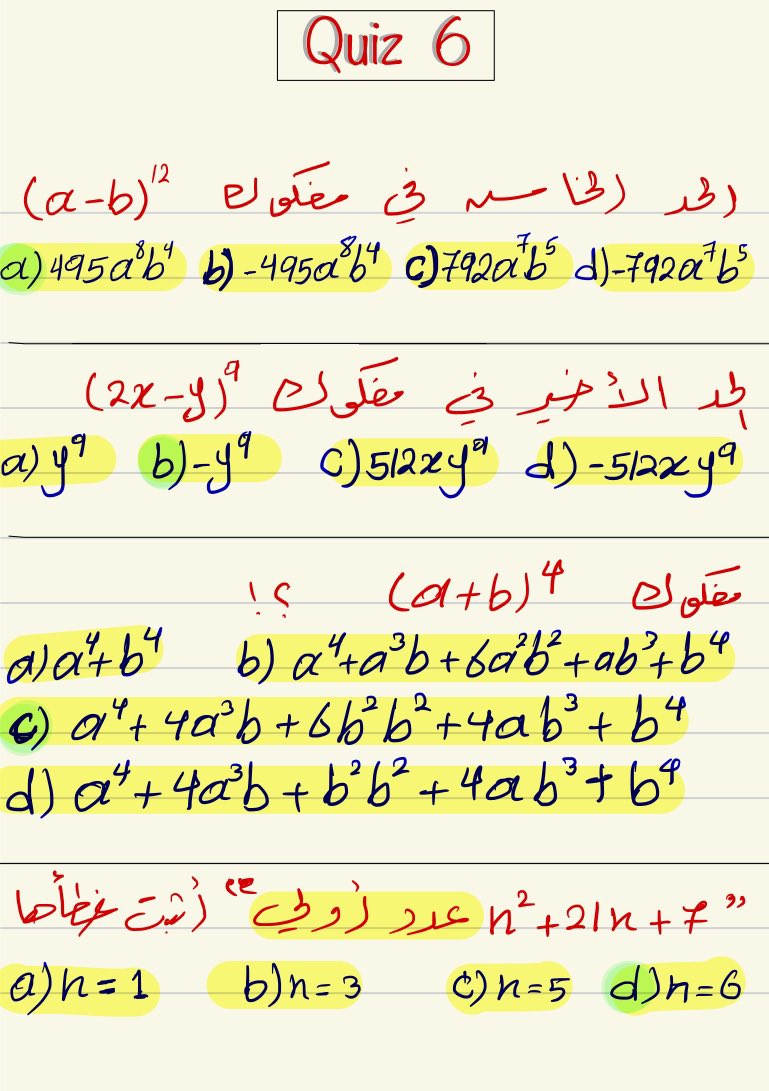 Quiz 6
الحد الخامس في مفكوك (a-b)¹²
a) 495a⁸b⁴ b) -495a⁸b⁴ c) 792a⁷b⁵ d) -792a⁷b⁵
الحد الأخير في مفكوك (2x-y)⁹
a) y⁹ b) -y⁹ c) 512xy⁹ d) -512xy⁹
مفكوك (a+b)⁴ ؟!
a) a⁴+b⁴ b) a⁴+a³b+6a²b²+ab³+b⁴
c) a⁴+4a³b+6b²b²+4ab³+b⁴
d) a⁴+4a³b+b²b²+4ab³+b⁴
"n²+21n+7 عدد أولي" أثبت خطأها
a) n=1 b) n=3 c) n=5 d) n=6